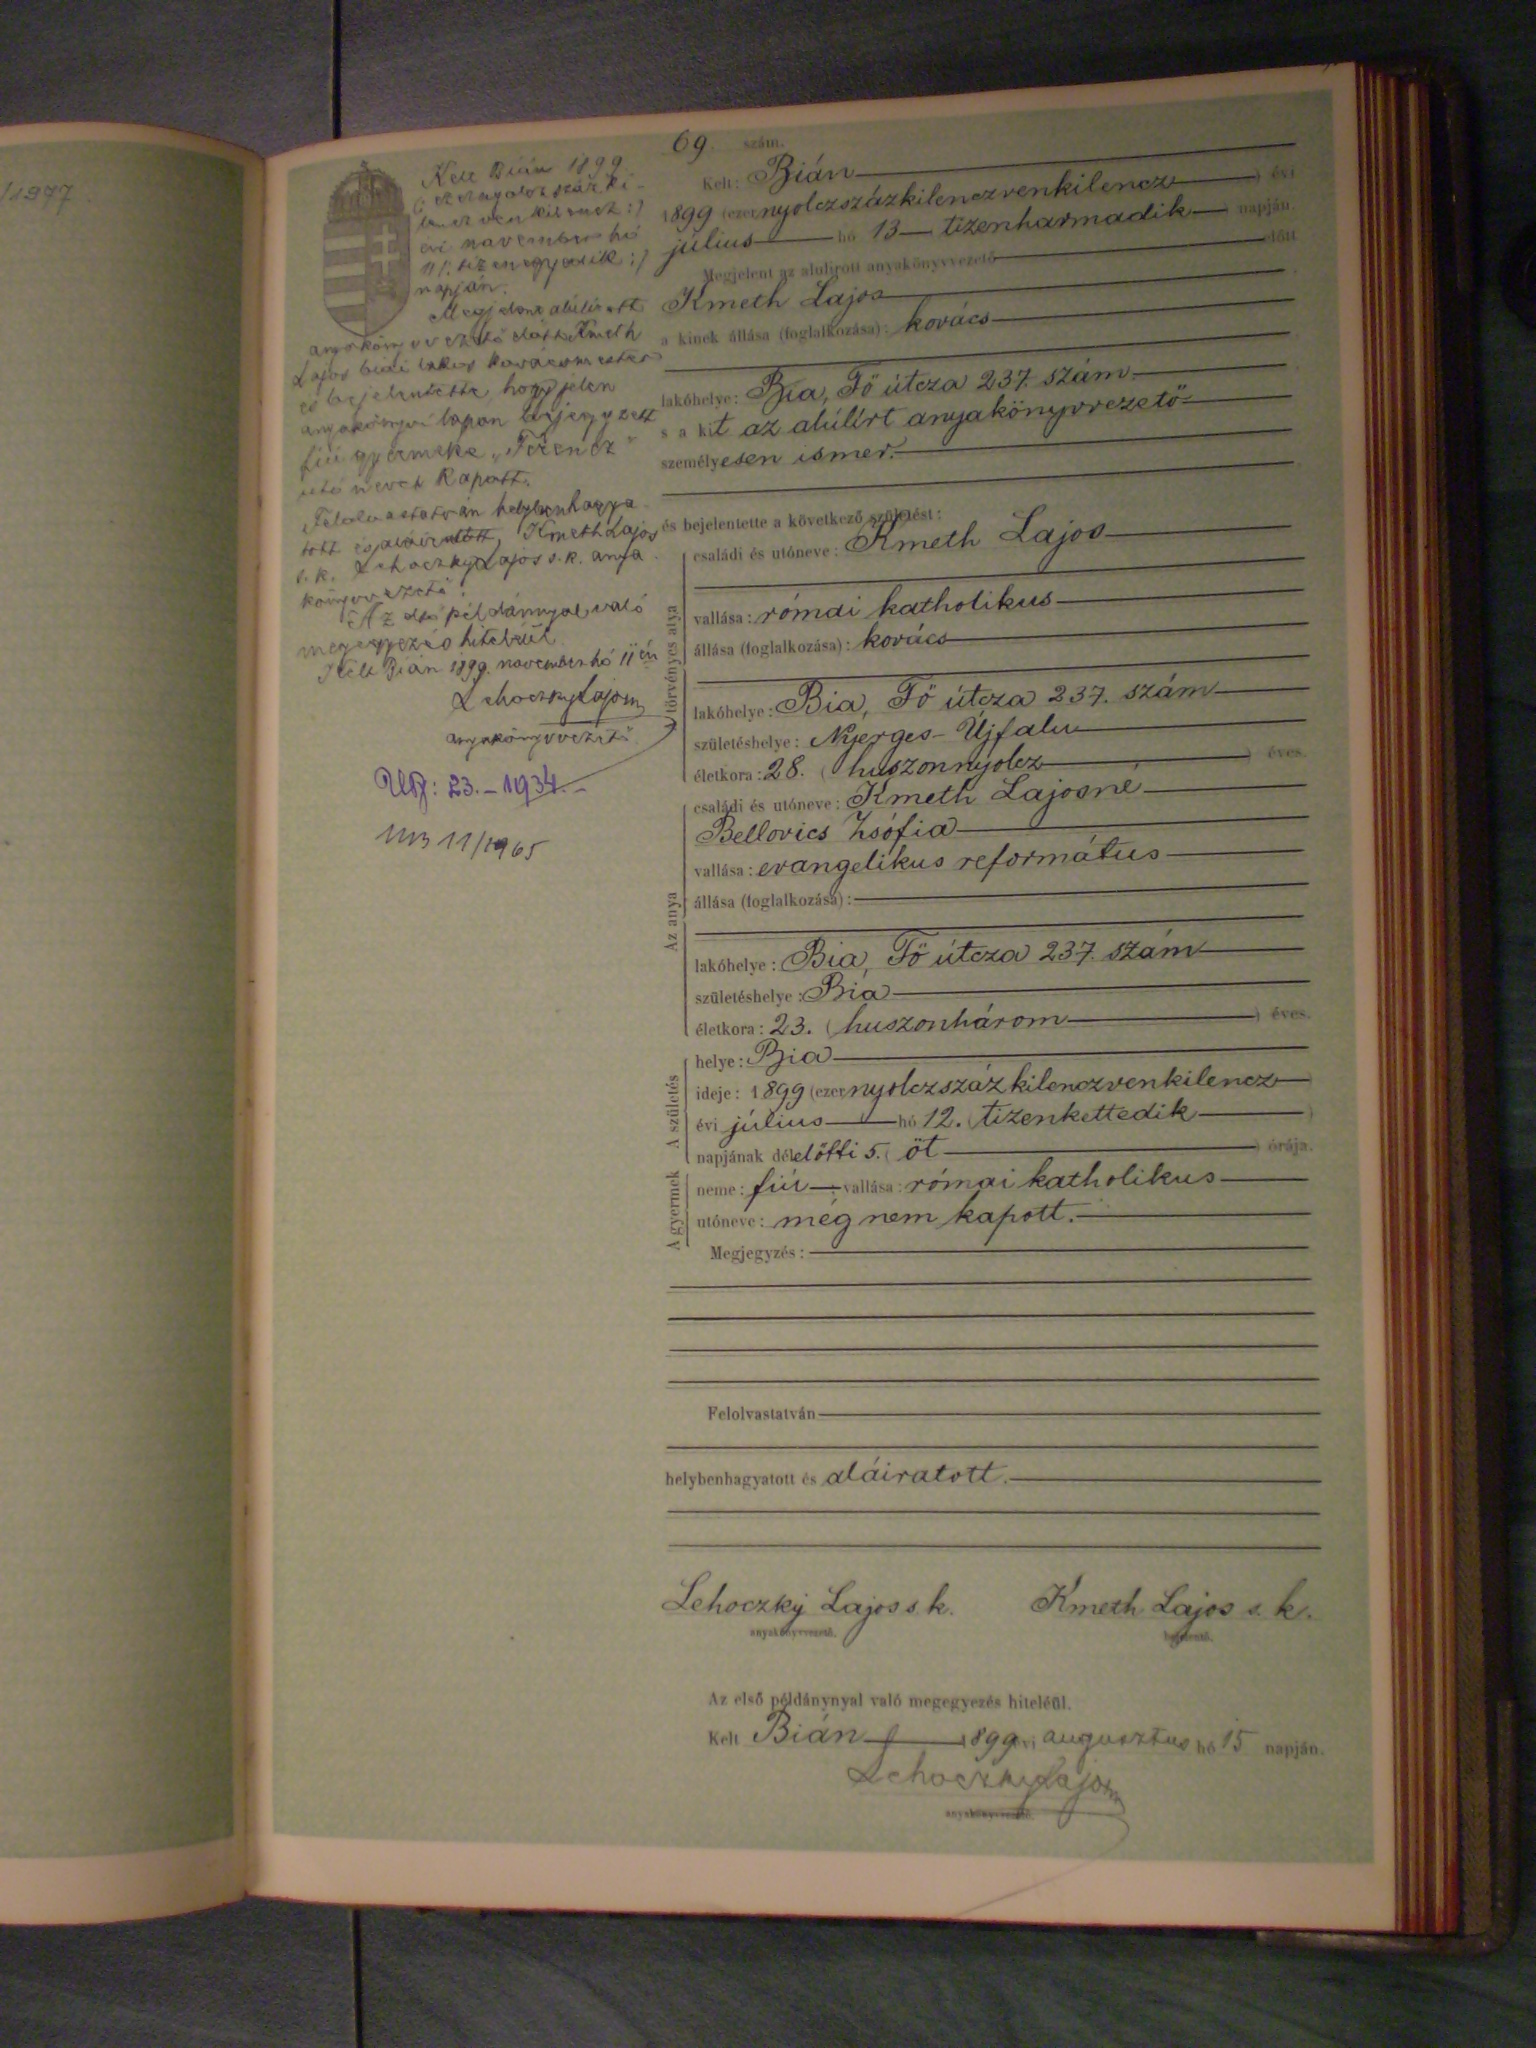 /1977.
Kelt Bián 1899
(: ezernyolczszázki-
lenczvenkilencz :)
évi november hó
11 (: tizenegyedik :)
napján.
Megjelent alulirott
anyakönyvvezető előtt Kmeth
Lajos biai lakos kovácsmester
és bejelentette, hogy jelen
anyakönyvi lapon bejegyzett
fiú gyermeke „Ferencz"
utónevet kapott.
Felolvastatván helybenhagya-
tott és aláiratott, Kmeth Lajos
s. k. Lehoczky Lajos s. k. anya-
könyvvezető.
Az első példánnyal való
megegyezés hiteléül.
Kelt Bián 1899. november hó 11én
Lehoczky Lajos
anyakönyvvezető
23.-1934.-
11/1965
69 szám.
Kelt: Bián
1899 (ezernyolczszázkilenczvenkilencz) évi
július hó 13 tizenharmadik napján.
Megjelent az alulirott anyakönyvvezető előtt
Kmeth Lajos
a kinek állása (foglalkozása): kovács
lakóhelye: Bia, Fő útcza 237. szám.
s a kit az alúlírt anyakönyvvezető
személyesen ismer.
és bejelentette a következő születést:
A törvényes atya
családi és utóneve: Kmeth Lajos
vallása: római katholikus
állása (foglalkozása): kovács
lakóhelye: Bia, Fő útcza 237. szám
születéshelye: Nyerges-Újfalu
életkora: 28. (huszonnyolcz) éves.
Az anya
családi és utóneve: Kmeth Lajosné
Bellovics Zsófia
vallása: evangelikus református
állása (foglalkozása):
lakóhelye: Bia, Fő útcza 237. szám
születéshelye: Bia
életkora: 23. (huszonhárom) éves.
A születés
helye: Bia
ideje: 1899 (ezernyolczszázkilenczvenkilencz)
évi július hó 12. (tizenkettedik)
napjának délelőtti 5. (öt) órája.
A gyermek
neme: fiú; vallása: római katholikus
utóneve: még nem kapott.
Megjegyzés:
Felolvastatván
helybenhagyatott és aláiratott.
Lehoczky Lajos s. k. Kmeth Lajos s. k.
anyakönyvvezető. bejelentő.
Az első példánynyal való megegyezés hiteléül.
Kelt Bián 1899 évi augusztus hó 15 napján.
Lehoczky Lajos
anyakönyvvezető.